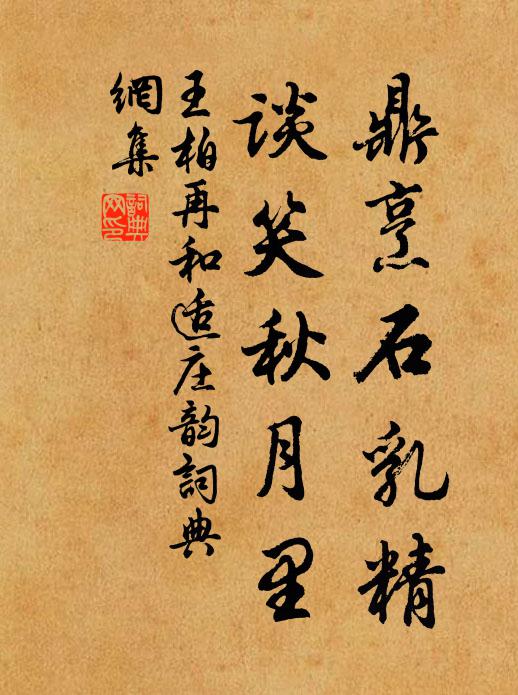 鼎烹石乳精
谈笑秋月里
王柏再和适庄韵詞典
網集
詞典网印